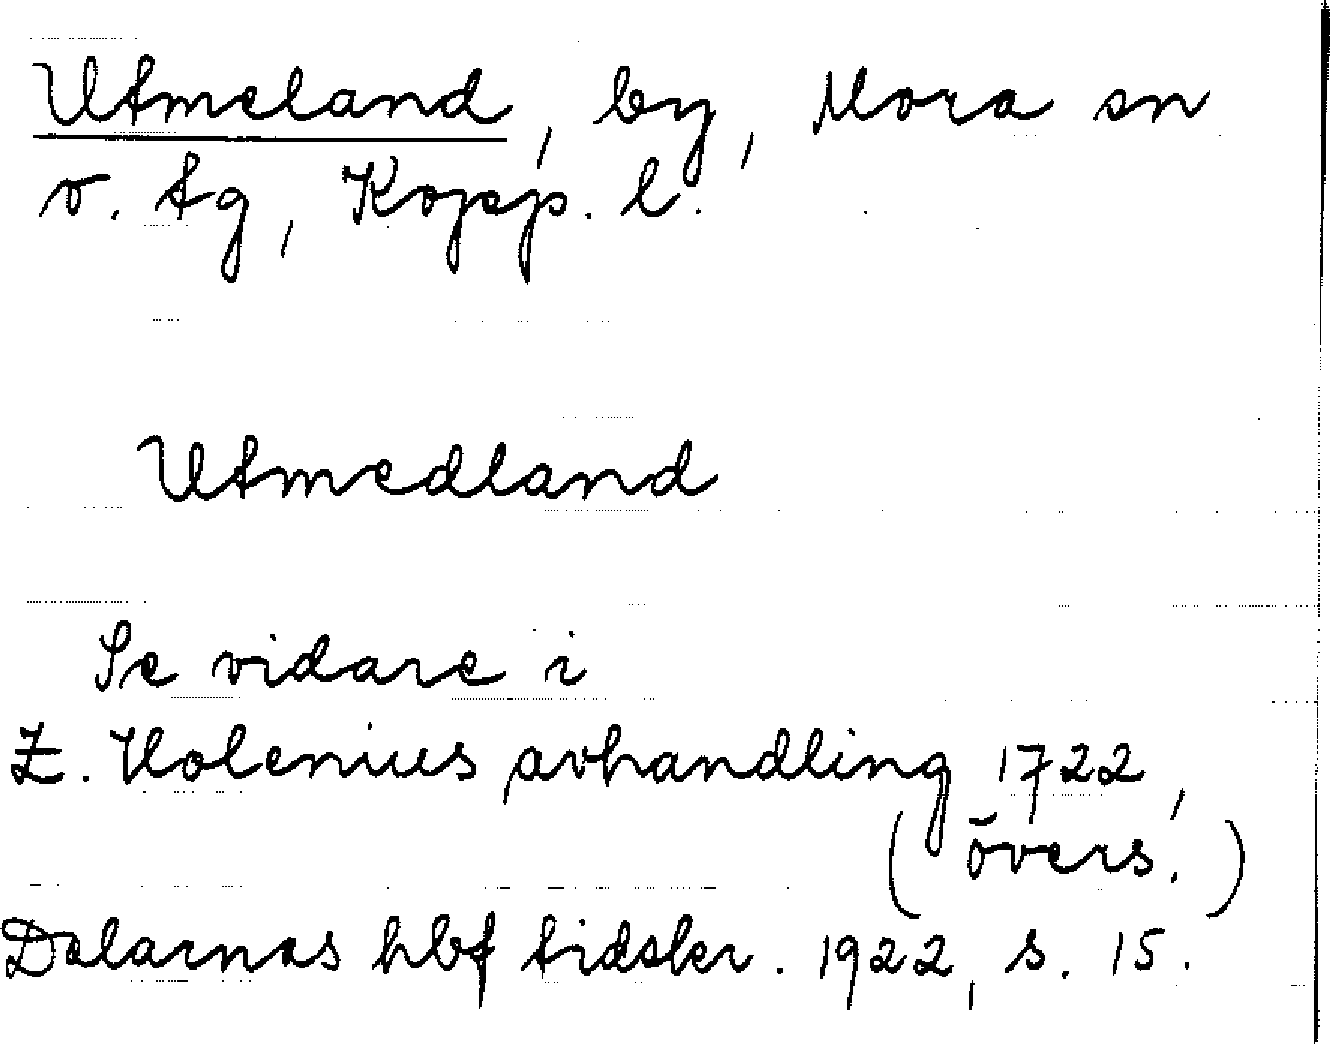 Utmeland, by, Mora sn
v. tg, Kopp. l.
Utmedland
Se vidare i
Z. Holenius avhandling 1722,
(övers.)
Dalarnas hbf tidskr. 1922, s. 15.